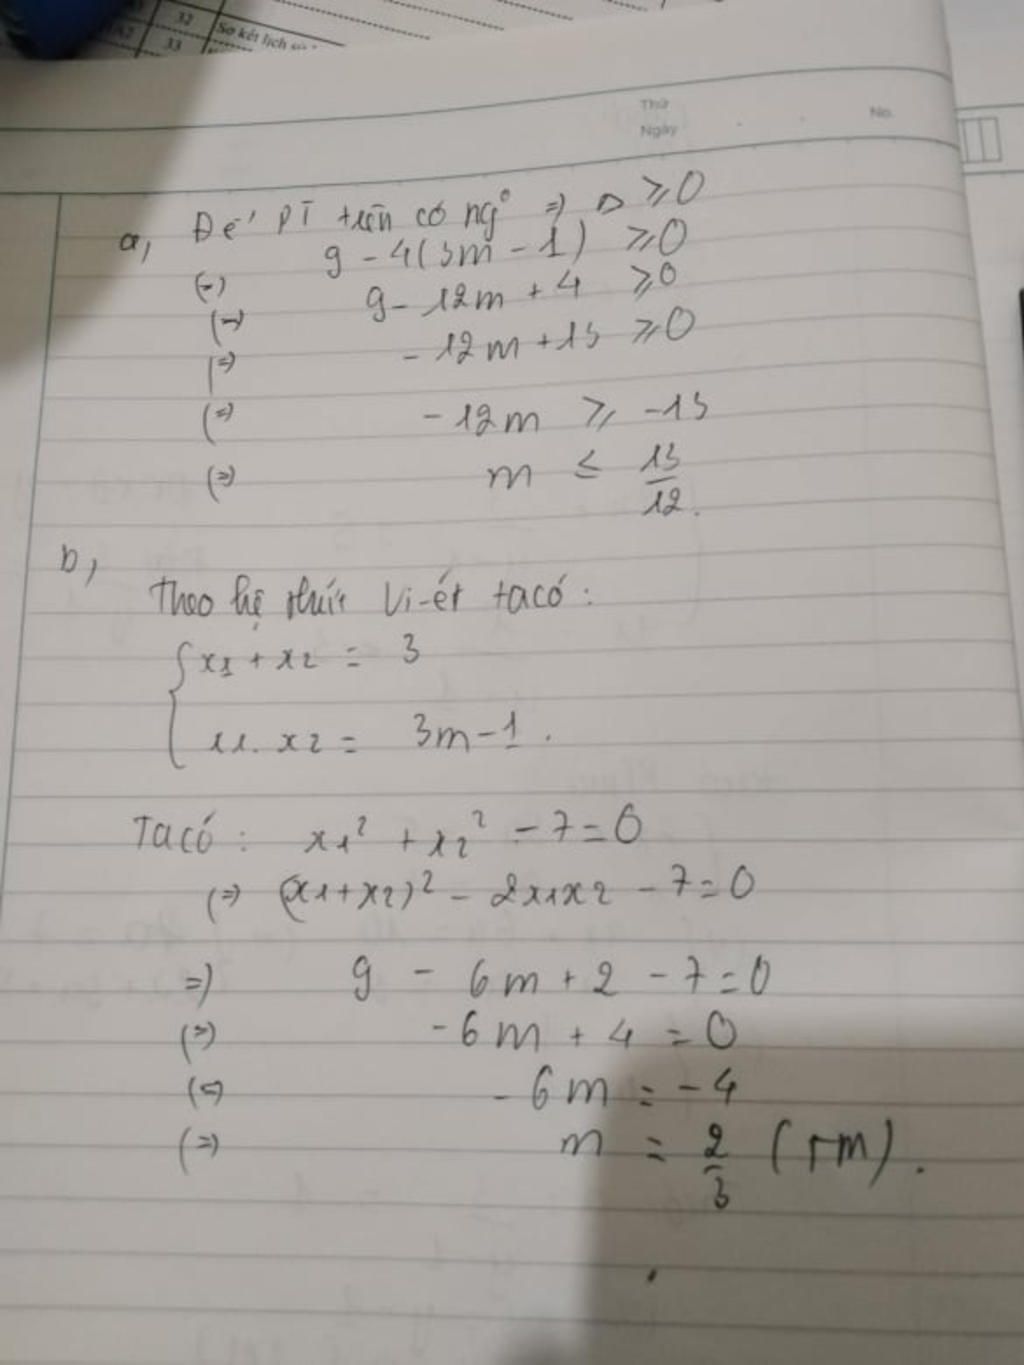 32
33
Sơ kết lịch sử
Thứ
Ngày
No.
a, Để PT trên có ngo => Δ ≥ 0
(=) 9 - 4(3m - 1) ≥ 0
(=) 9 - 12m + 4 ≥ 0
(=) - 12m + 13 ≥ 0
(=) - 12m ≥ -13
(=) m ≤ 13/12.
b,
Theo hệ thức Vi-ét ta có:
{ x1 + x2 = 3
x1. x2 = 3m - 1.
Ta có: x1² + x2² - 7 = 0
(=) (x1+x2)² - 2x1x2 - 7 = 0
=) 9 - 6m + 2 - 7 = 0
(=) - 6m + 4 = 0
(=) - 6m = - 4
(=) m = 2/3 (tm).